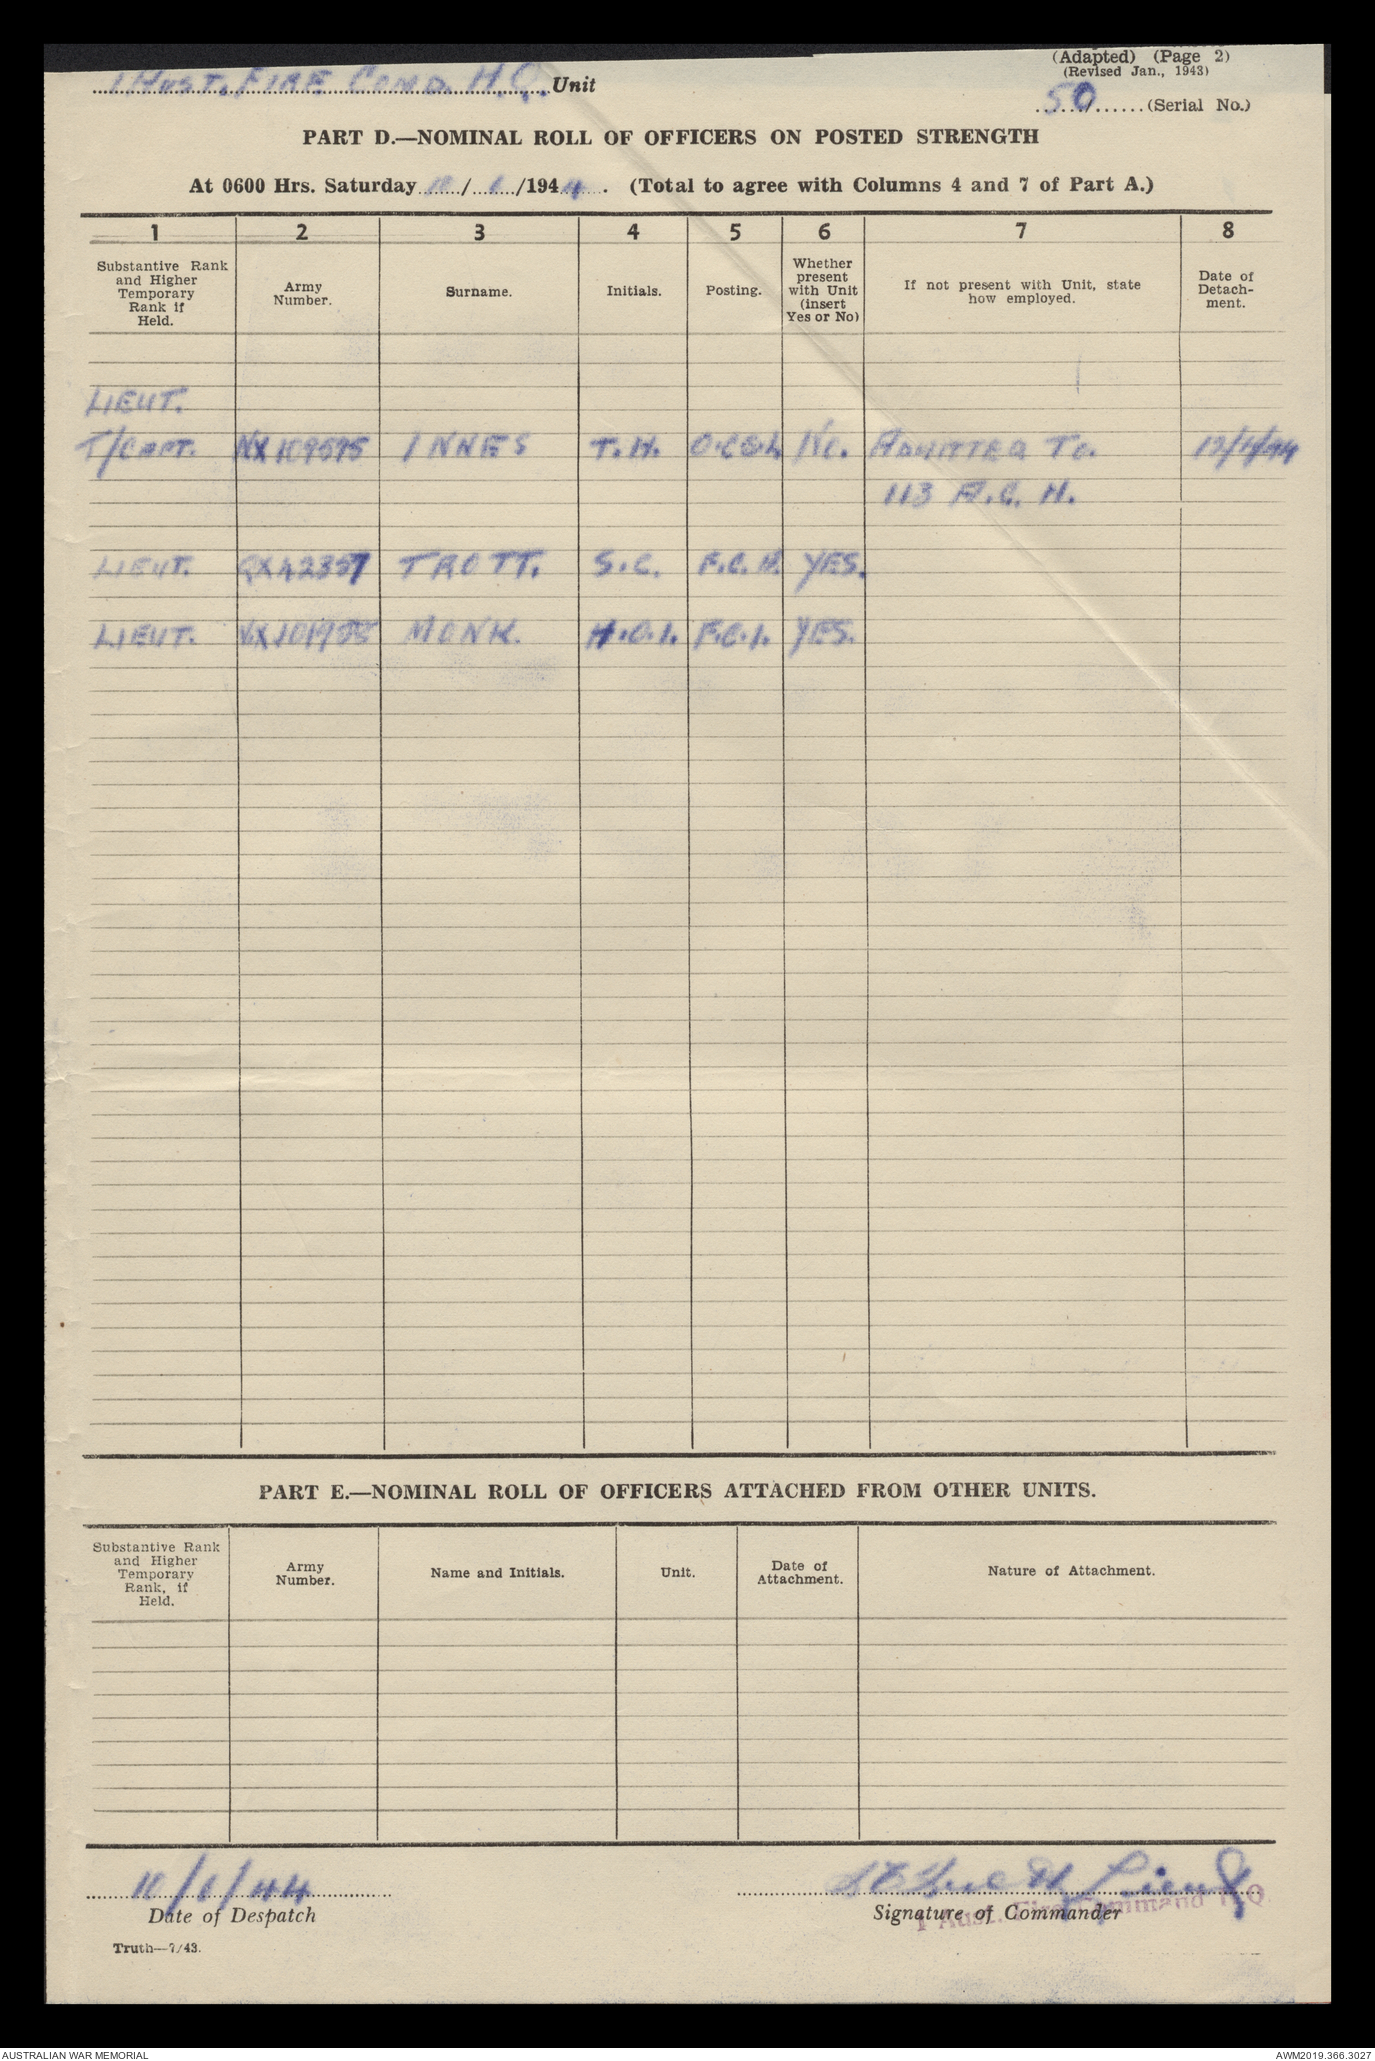 (Adapted) (Page 2)
(Revised Jan., 1943)
1 Aust. Fire Comd. H.Q. Unit
50 (Serial No.)
PART D.—NOMINAL ROLL OF OFFICERS ON POSTED STRENGTH
At 0600 Hrs. Saturday 10/6/1944. (Total to agree with Columns 4 and 7 of Part A.)
1 2 3 4 5 6 7 8
Substantive Rank and Higher Temporary Rank if Held.
Army Number.
Surname.
Initials.
Posting.
Whether present with Unit (insert Yes or No)
If not present with Unit, state how employed.
Date of Detachment.
LIEUT.
T/CAPT. NX109575 INNES T.H. No. ADMITTED To.
113 A.G.H.
LIEUT. QX42357 TROTT. S.C. YES.
LIEUT. MONK. F.C.I. YES.
PART E.—NOMINAL ROLL OF OFFICERS ATTACHED FROM OTHER UNITS.
Substantive Rank and Higher Temporary Rank, if Held.
Army Number.
Name and Initials.
Unit.
Date of Attachment.
Nature of Attachment.
10/6/44
Date of Despatch
Lieut
Signature of Commander
1 Aust. Fire Command H.Q.
Truth—7/43.
AUSTRALIAN WAR MEMORIAL
AWM2019.366.3027